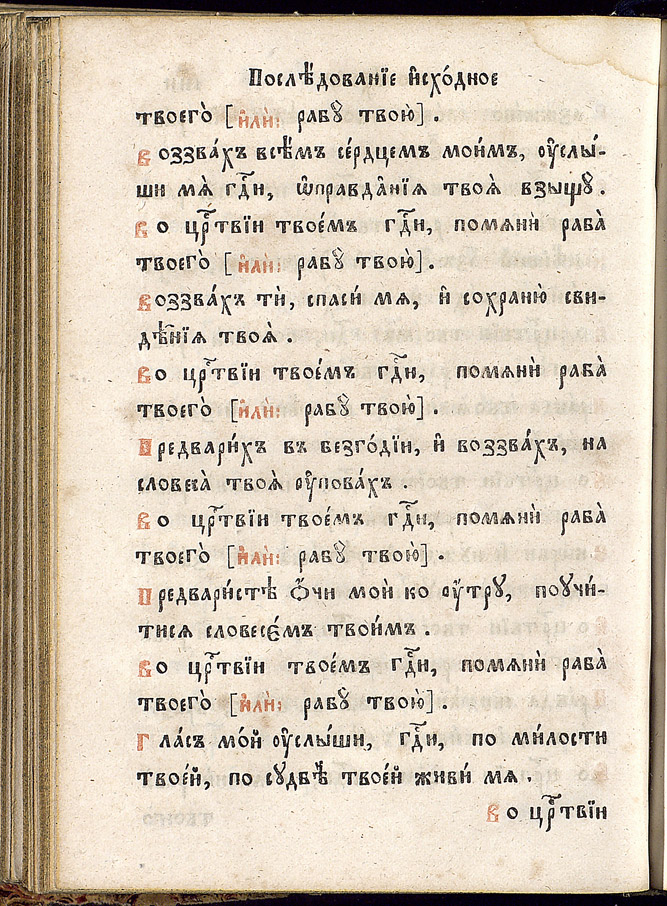 Послѣ́дованїе и҆схо́дное
твоего̀ [и҆лѝ: рабꙋ̀ твою̀] .
Воззва́хъ всѣ́мъ се́рдцемъ мои́мъ, ᲂу҆слы́-
ши мѧ̀ гдⷭ҇и, ѡ҆правда̑нїѧ твоѧ̑ взыщꙋ̀ .
Во црⷭ҇твїи твое́мъ гдⷭ҇и, помѧнѝ раба̀
твоего̀ [и҆лѝ: рабꙋ̀ твою̀] .
Воззва́хъ тѝ, спаси́ мѧ, и҆ сохраню̀ сви-
дѣ̑нїѧ твоѧ̑ .
Во црⷭ҇твїи твое́мъ гдⷭ҇и, помѧнѝ раба̀
твоего̀ [и҆лѝ: рабꙋ̀ твою̀] .
Предвари́хъ въ безго́дїи, и҆ воззва́хъ, на
словеса̀ твоѧ̑ ᲂу҆пова́хъ .
Во црⷭ҇твїи твое́мъ гдⷭ҇и, помѧнѝ раба̀
твоего̀ [и҆лѝ: рабꙋ̀ твою̀] .
Предвари́стѣ ѻ҆́чи моѝ ко ᲂу҆́трꙋ, поꙋчи́-
тисѧ словесє́мъ твои̑мъ .
Во црⷭ҇твїи твое́мъ гдⷭ҇и, помѧнѝ раба̀
твоего̀ [и҆лѝ: рабꙋ̀ твою̀] .
Гла́съ мо́й ᲂу҆слы́ши, гдⷭ҇и, по ми́лости
твое́й, по сꙋдбѣ̀ твое́й живи́ мѧ .
Во црⷭ҇твїи